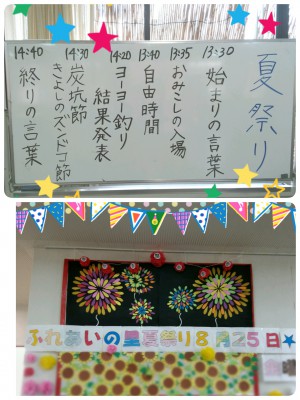 夏祭り
13:30 始まりの言葉
13:35 おみこしの入場
13:40 自由時間
14:20 ヨーヨー釣り
結果発表
14:30 炭坑節
きよしのズンドコ節
14:40 終りの言葉
ふれあいの里夏祭り8月25日